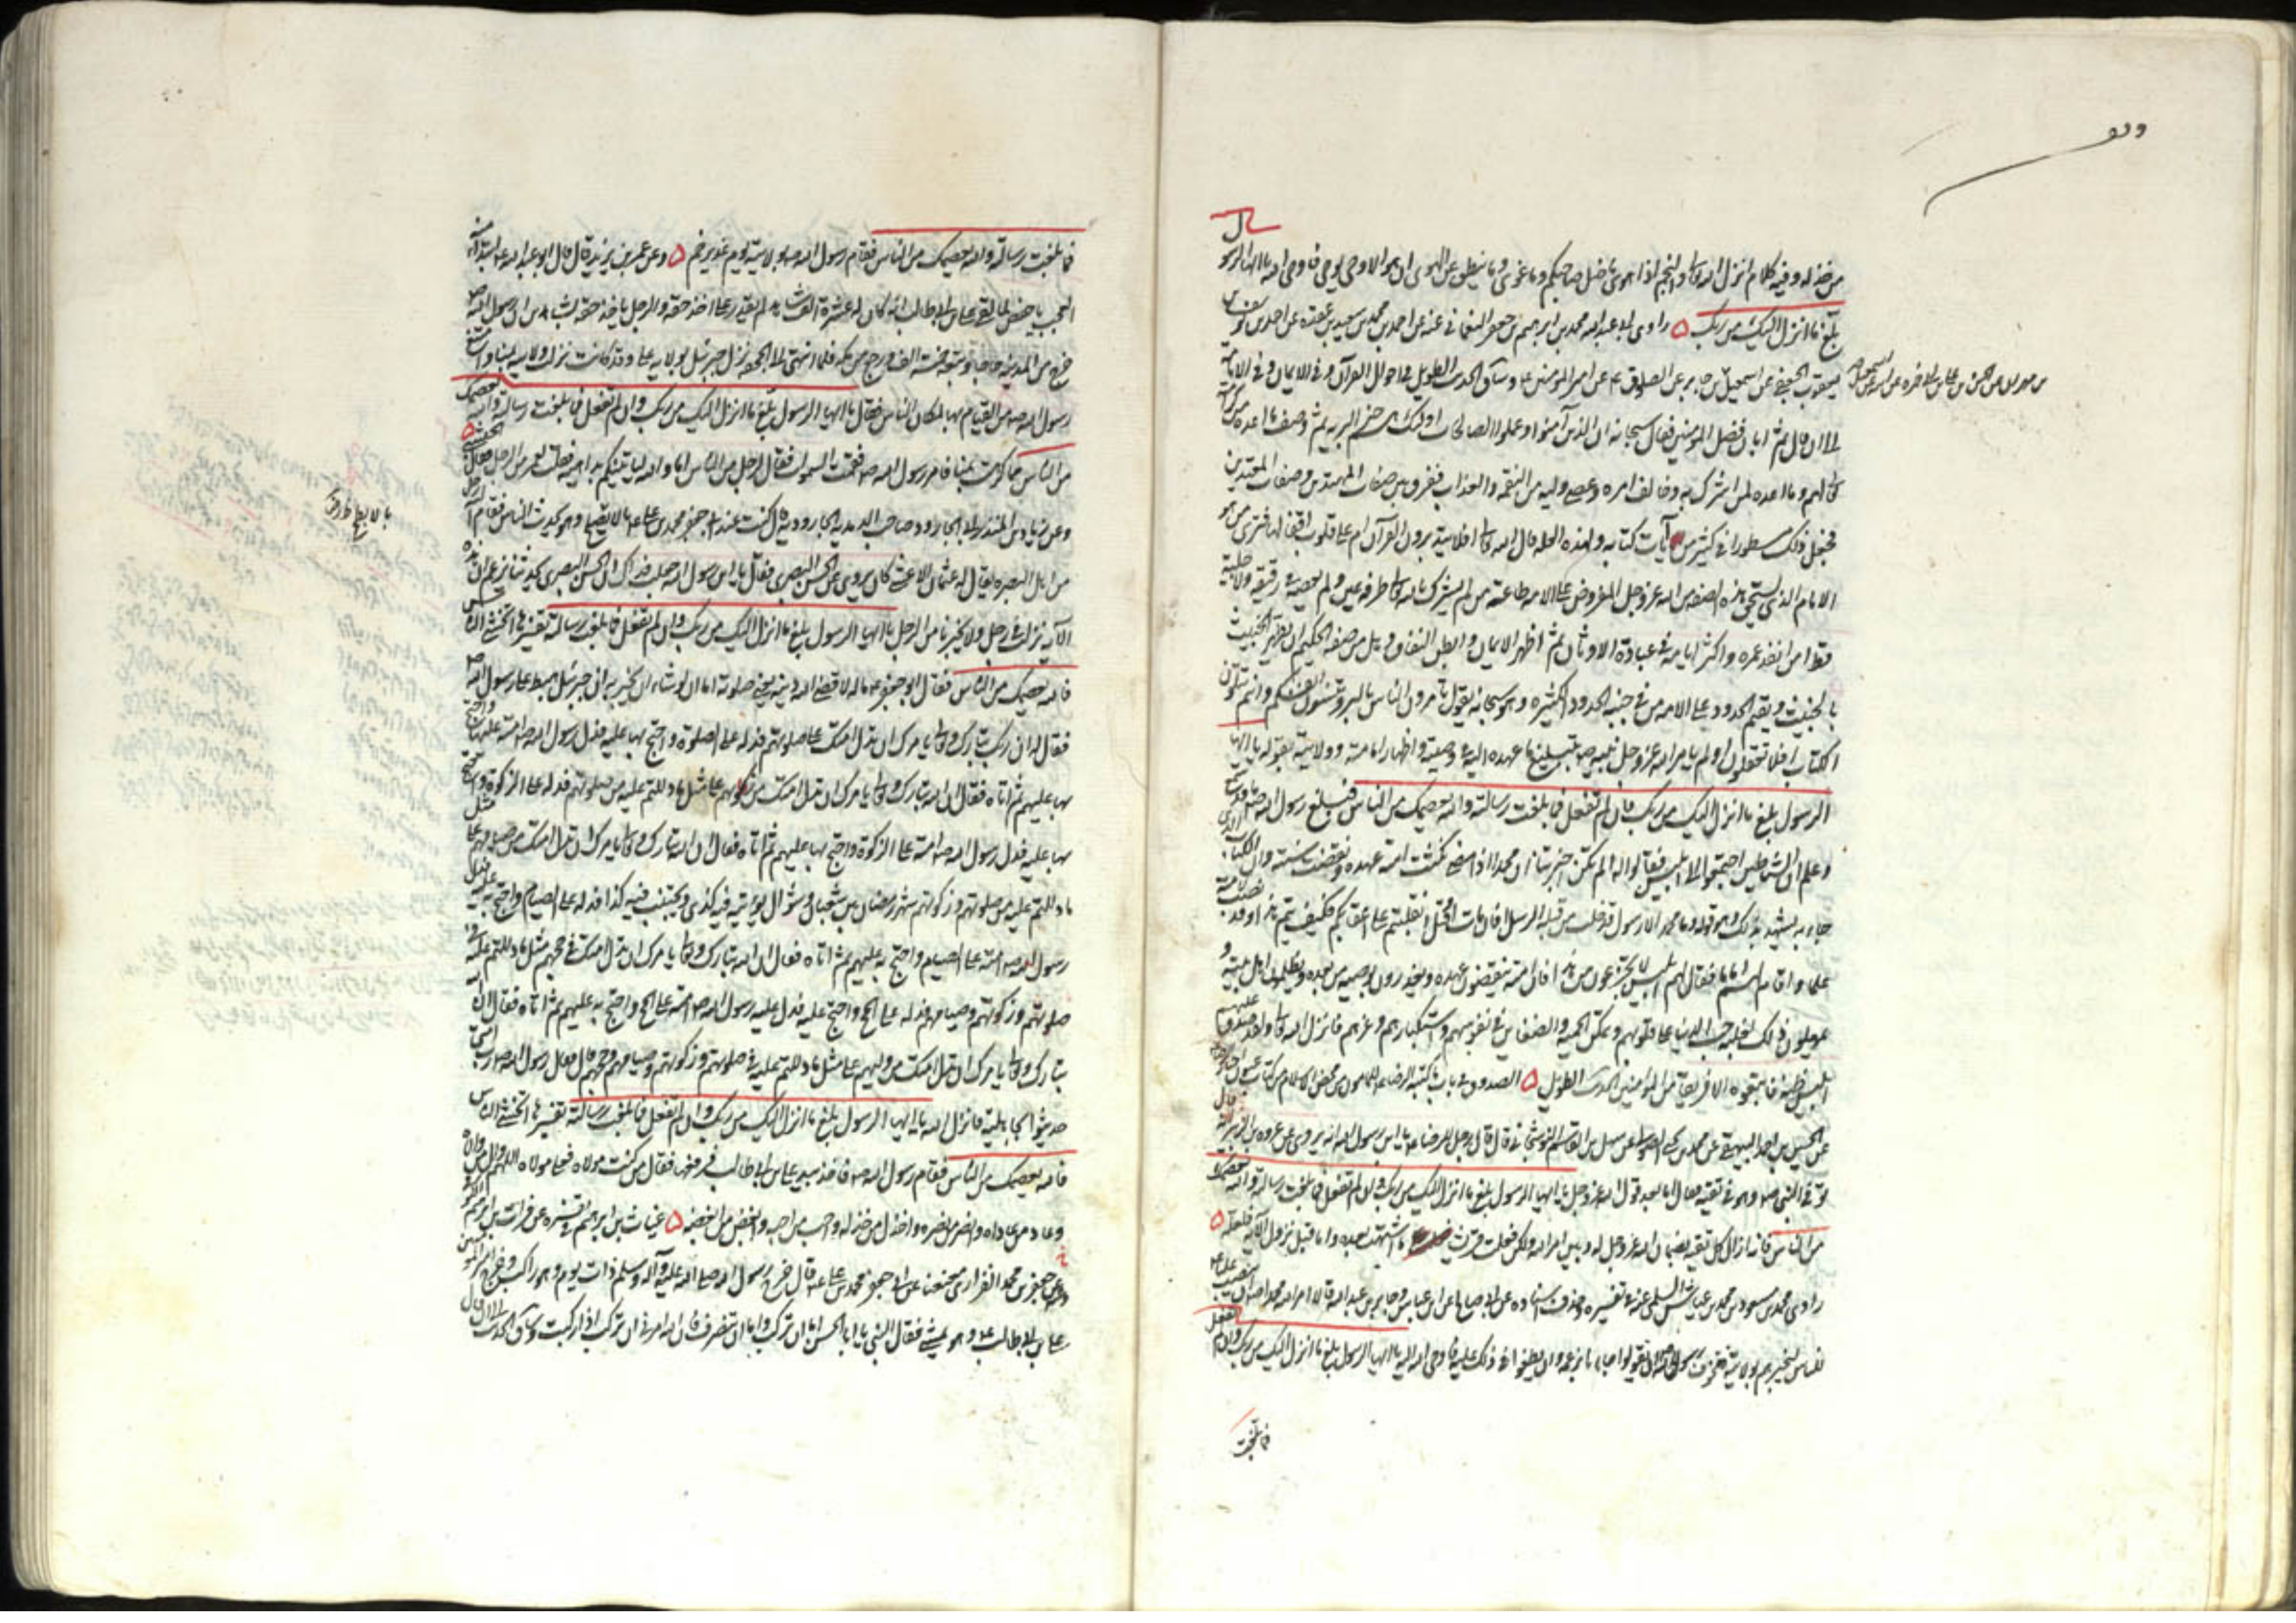 من خذله وفيه كلام انزل الله تعالى والنجم اذا هوى ما ضل صاحبكم وما غوى وما ينطق عن الهوى ان هو الا وحي يوحى فاوحى اليه يا ايها الرسول
بلغ ما انزل اليك من ربك ابي عبد الله محمد بن ابراهيم بن جعفر النعماني عنه عن احمد بن محمد بن سعيد بن عقدة عن احمد بن يوسف بن
يعقوب الجعفي عن اسمعيل بن مهران عن الحسن بن علي بن ابي حمزة عن ابيه عن اسمعيل بن جابر عن الصادق ع عن امير المؤمنين ع وساق الحديث الطويل في احوال القرآن وفي الايمان وفي الامامة
الى ان قال ثم ابان فضل المؤمنين فقال سبحانه ان الذين آمنوا وعملوا الصالحات اولئك هم خير البرية ثم وصف ما اعده من كرامته
لهم وما اعده لمن اشرك به وخالف امره وعصى وليه من النقمة والعذاب ففرق بين صفات المهتدين وصفات المعتدين
فجعل ذلك مسطورا في كثير من آيات كتابه ولهذه العلة قال الله تعالى افلا يتدبرون القرآن ام على قلوب اقفالها فترى من هو
الامام الذي يستحق هذه الصفة من الله عز وجل المفروض على الامة طاعته من لم يشرك بالله تعالى طرفة عين ولم يعصه في دقيقة ولا جليلة
قط ام من انفد عمره واكثر ايامه في عبادة الاوثان ثم اظهر الايمان وابطن النفاق وهل من صفة الحكيم ان يطهر الخبيث
بالخبيث ويقيم الحدود على الامة من في جنبه الحدود الكثيرة وهو سبحانه يقول اتأمرون الناس بالبر وتنسون انفسكم وانتم تتلون
الكتاب افلا تعقلون اولم يامر الله عز وجل نبيه ص بتبليغ ما عهده اليه في وصيه واظهار امامته وولايته بقوله يا ايها
الرسول بلغ ما انزل اليك من ربك فان لم تفعل فما بلغت رسالته والله يعصمك من الناس فبلغ رسول الله ص ما قد سمع
وعلم ان الشياطين اجتمعوا الى ابليس فقالوا له الم تكن اخبرتنا ان محمدا اذا مضى نكثت امته عهده ونقضت سنته وان الكتاب الذي
جاء به يشهد بذلك وهو قوله وما محمد الا رسول قد خلت من قبله الرسل افان مات او قتل انقلبتم على اعقابكم فكيف يتم هذا وقد نصب لامته
علما واقام لهم اماما فقال لهم ابليس لا تجزعوا من هذا فان امته ينقضون عهده ويغدرون بوصيه من بعده ويظلمون اهل بيته و
يهملون ذلك لغلبة حب الدنيا على قلوبهم وتمكن الحمية والضغاين في نفوسهم واستكبارهم وعزهم فانزل الله تعالى ولقد صدق عليهم
ابليس ظنه فاتبعوه الا فريقا من المؤمنين الحديث الطويل الصدوق في باب ما كتبه الرضا ع للمامون من محض الاسلام من كتاب عيون
عن الحسين بن احمد البيهقي عن محمد بن يحيى الصولي عن سهل بن القاسم النوشجاني قال قال رجل للرضا ع يا ابن رسول الله انه يروى عن عروة بن الزبير انه قال
توفي النبي ص وهو في تقية فقال اما بعد قول الله عز وجل يا ايها الرسول بلغ ما انزل اليك من ربك وان لم تفعل فما بلغت رسالته والله يعصمك
من الناس فانه ازال كل تقية بضمان الله عز وجل له وبين امر الله ولكن قريشا فعلت ما اشتهت بعده واما قبل نزول الآية فلعله
محمد بن مسعود بن محمد بن عياش السلمي عنه في تفسيره عن ابي صالح عن ابن عباس وجابر بن عبد الله قالا امر الله محمدا ص ان ينصب عليا ع
للناس ليخبرهم بولايته فتخوف رسول الله ص ان يقولوا حابى ابن عمه وان يطغوا في ذلك عليه فاوحى الله اليه يا ايها الرسول بلغ ما انزل اليك من ربك وان لم تفعل
فما بلغت
فما بلغت رسالته والله يعصمك من الناس فقام رسول الله ص بولايته يوم غدير خم وعن عمر بن يزيد قال قال ابو عبد الله ع ابتداء منه
العجب يا حفص لما لقي علي بن ابي طالب انه كان له عشرة الف شاهد لم يقدر على اخذ حقه والرجل ياخذ حقه بشاهدين ان رسول الله ص
خرج من المدينة حاجا وتبعه خمسة الف ورجع من مكة فلما انتهى الى الجحفة نزل جبرئيل بولاية علي ع وقد كانت نزلت ولايته بمنى وامتنع
رسول الله ص من القيام بها لمكان الناس فقال يا ايها الرسول بلغ ما انزل اليك من ربك وان لم تفعل فما بلغت رسالته والله يعصمك
من الناس مما كرهت بمنى فامر رسول الله ص فقمت السمرات فقال رجل من الناس اما والله ليأتينكم بداهية فقلت لعمر من الرجل فقال الحبشي
وعن زياد بن المنذر ابي الجارود صاحب الزيدية الجارودية قال كنت عند ابي جعفر محمد بن علي ع بالابطح وهو يحدث الناس فقام اليه رجل
من اهل البصرة يقال له عثمان الاعشى كان يروي عن الحسن البصري فقال يا ابن رسول الله جعلت فداك ان الحسن البصري يحدثنا يزعم ان هذه
الآية نزلت في رجل ولا يخبرنا من الرجل يا ايها الرسول بلغ ما انزل اليك من ربك وان لم تفعل فما بلغت رسالته تفسيرها اتخشى الناس
فالله يعصمك من الناس فقال ابو جعفر ع ما له لا قضى الله دينه يعني صلوته اما ان لو شاء ان يخبر به ان جبرئيل هبط على رسول الله ص
فقال له ان ربك تبارك وتعالى يامرك ان تدل امتك على صلوتهم فدله على الصلوة واحتج بها عليه فدل رسول الله ص امته عليها واحتج
بها عليهم ثم اتاه فقال ان الله تبارك وتعالى يامرك ان تدل امتك من زكوتهم على مثل ما دللتهم عليه من صلوتهم فدله على الزكوة واحتج
بها عليه فدل رسول الله ص امته على الزكوة واحتج بها عليهم ثم اتاه فقال ان الله تبارك وتعالى يامرك ان تدل امتك من صيامهم على مثل
ما دللتهم عليه من صلوتهم وزكوتهم شهر رمضان بين شعبان وشوال يؤتى فيه كذا ويجتنب فيه كذا فدله على الصيام واحتج به عليه فدل
رسول الله ص امته على الصيام واحتج به عليهم ثم اتاه فقال ان الله تبارك وتعالى يامرك ان تدل امتك في حجهم مثل ما دللتهم عليه في
صلوتهم وزكوتهم وصيامهم فدله على الحج واحتج عليه فدل عليه رسول الله ص امته على الحج واحتج به عليهم ثم اتاه فقال ان الله
تبارك وتعالى يامرك ان تدل امتك من وليهم على مثل ما دللتهم عليه في صلوتهم وزكوتهم وصيامهم وحجهم قال فقال رسول الله ص رب امتي
حديثوا الجاهلية فانزل الله يا ايها الرسول بلغ ما انزل اليك من ربك وان لم تفعل فما بلغت رسالته تفسيرها اتخشى الناس
فالله يعصمك من الناس فقام رسول الله ص فاخذ بيد علي بن ابي طالب فرفعها فقال من كنت مولاه فعلي مولاه اللهم وال من والاه
وعاد من عاداه وانصر من نصره واخذل من خذله واحب من احبه وابغض من ابغضه فرات بن ابراهيم
عن جعفر بن محمد الفزاري معنعنا عن ابي جعفر محمد بن علي ع قال خرج رسول الله صلى الله عليه وآله وسلم ذات يوم وهو راكب وخرج امير المؤمنين
علي بن ابي طالب ع وهو يمشي فقال النبي يا ابا الحسن اما ان تركب واما ان تنصرف فان الله امرني ان تركب اذا ركبت وساق الحديث الى ان قال